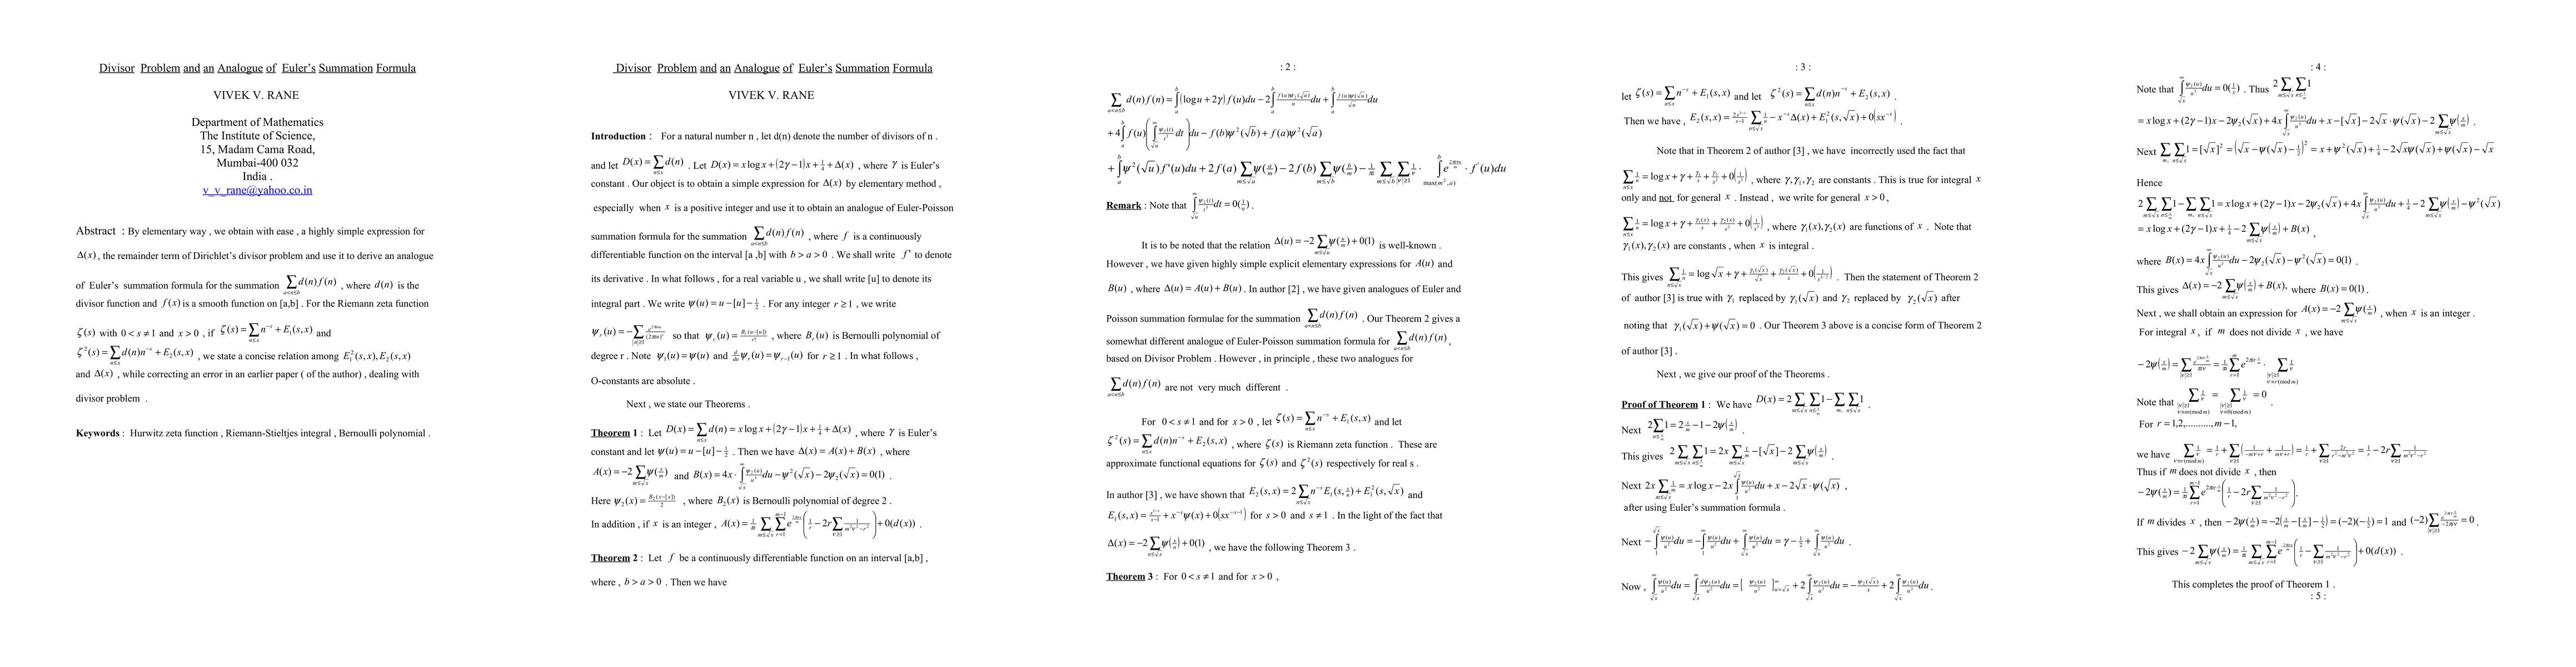 Divisor Problem and an Analogue of Euler's Summation Formula
VIVEK V. RANE
Department of Mathematics
The Institute of Science,
15, Madam Cama Road,
Mumbai-400 032
India .
v_v_rane@yahoo.co.in
Abstract : By elementary way , we obtain with ease , a highly simple expression for
Δ(x), the remainder term of Dirichlet's divisor problem and use it to derive an analogue
of Euler's summation formula for the summation ∑_{a<n≤b} d(n)f(n) , where d(n) is the
divisor function and f(x) is a smooth function on [a,b] . For the Riemann zeta function
ζ(s) with 0 < s ≠ 1 and x > 0 , if ζ(s) = ∑_{n≤x} n^{-s} + E_1(s,x) and
ζ^2(s) = ∑_{n≤x} d(n)n^{-s} + E_2(s,x) , we state a concise relation among E_1^2(s,x), E_2(s,x)
and Δ(x) , while correcting an error in an earlier paper ( of the author) , dealing with
divisor problem .
Keywords : Hurwitz zeta function , Riemann-Stieltjes integral , Bernoulli polynomial .
Divisor Problem and an Analogue of Euler's Summation Formula
VIVEK V. RANE
Introduction : For a natural number n , let d(n) denote the number of divisors of n .
and let D(x) = ∑_{n≤x} d(n) . Let D(x) = x log x + (2γ−1)x + 1/4 + Δ(x) , where γ is Euler's
constant . Our object is to obtain a simple expression for Δ(x) by elementary method ,
especially when x is a positive integer and use it to obtain an analogue of Euler-Poisson
summation formula for the summation ∑_{a<n≤b} d(n)f(n) , where f is a continuously
differentiable function on the interval [a ,b] with b > a > 0 . We shall write f' to denote
its derivative . In what follows , for a real variable u , we shall write [u] to denote its
integral part . We write ψ(u) = u − [u] − 1/2 . For any integer r ≥ 1 , we write
ψ_r(u) = −∑_{|n|≥1} e^{2πinu}/(2πin)^r so that ψ_r(u) = B_r(u−[u])/r! , where B_r(u) is Bernoulli polynomial of
degree r . Note ψ_1(u) = ψ(u) and d/du ψ_r(u) = ψ_{r−1}(u) for r ≥ 1 . In what follows ,
O-constants are absolute .
Next , we state our Theorems .
Theorem 1 : Let D(x) = ∑_{n≤x} d(n) = x log x + (2γ−1)x + 1/4 + Δ(x) , where γ is Euler's
constant and let ψ(u) = u − [u] − 1/2 . Then we have Δ(x) = A(x) + B(x) , where
A(x) = −2 ∑_{m≤√x} ψ(x/m) and B(x) = 4x· ∫_{√x}^{∞} ψ_2(u)/u^3 du − ψ^2(√x) − 2ψ_2(√x) = 0(1) .
Here ψ_2(x) = B_2(x−[x])/2 , where B_2(x) is Bernoulli polynomial of degree 2 .
In addition , if x is an integer , A(x) = 1/πi ∑_{m≤√x} ∑_{r=1}^{m−1} e^{2πirx/m} (1/r − 2r ∑_{ν≥1} 1/(m^2ν^2−r^2)) + 0(d(x)) .
Theorem 2 : Let f be a continuously differentiable function on an interval [a,b] ,
where , b > a > 0 . Then we have
: 2 :
∑_{a<n≤b} d(n)f(n) = ∫_a^b (log u + 2γ) f(u)du − 2∫_a^b f(u)ψ_2(√u)/u du + ∫_a^b f(u)ψ(√u)/√u du
+ 4∫_a^b f(u) (∫_{√u}^{∞} ψ_2(t)/t^3 dt) du − f(b)ψ^2(√b) + f(a)ψ^2(√a)
+ ∫_a^b ψ^2(√u) f'(u)du + 2f(a) ∑_{m≤√a} ψ(a/m) − 2f(b) ∑_{m≤√b} ψ(b/m) − 1/πi ∑_{m≤√b} ∑_{|ν|≥1} 1/ν · ∫_{max(m^2,a)}^b e^{2πiνu/m} · f'(u)du
Remark : Note that ∫_{√u}^{∞} ψ_2(t)/t^3 dt = 0(1/u) .
It is to be noted that the relation Δ(u) = −2 ∑_{m≤√u} ψ(u/m) + 0(1) is well-known .
However , we have given highly simple explicit elementary expressions for A(u) and
B(u) , where Δ(u) = A(u) + B(u) . In author [2] , we have given analogues of Euler and
Poisson summation formulae for the summation ∑_{a<n≤b} d(n)f(n) . Our Theorem 2 gives a
somewhat different analogue of Euler-Poisson summation formula for ∑_{a<n≤b} d(n)f(n) ,
based on Divisor Problem . However , in principle , these two analogues for
∑_{a<n≤b} d(n)f(n) are not very much different .
For 0 < s ≠ 1 and for x > 0 , let ζ(s) = ∑_{n≤x} n^{-s} + E_1(s,x) and let
ζ^2(s) = ∑_{n≤x} d(n)n^{-s} + E_2(s,x) , where ζ(s) is Riemann zeta function . These are
approximate functional equations for ζ(s) and ζ^2(s) respectively for real s .
In author [3] , we have shown that E_2(s,x) = 2 ∑_{n≤√x} n^{-s} E_1(s,x/n) + E_1^2(s,√x) and
E_1(s,x) = x^{1−s}/(s−1) + x^{-s}ψ(x) + 0(sx^{-s−1}) for s > 0 and s ≠ 1 . In the light of the fact that
Δ(x) = −2 ∑_{n≤√x} ψ(x/n) + 0(1) , we have the following Theorem 3 .
Theorem 3 : For 0 < s ≠ 1 and for x > 0 ,
: 3 :
let ζ(s) = ∑_{n≤x} n^{-s} + E_1(s,x) and let ζ^2(s) = ∑_{n≤x} d(n)n^{-s} + E_2(s,x) .
Then we have , E_2(s,x) = 2x^{1−s}/(s−1) ∑_{n≤√x} 1/n − x^{-s}Δ(x) + E_1^2(s,√x) + 0(sx^{-s})
Note that in Theorem 2 of author [3] , we have incorrectly used the fact that
∑_{n≤x} 1/n = log x + γ + γ_1/x + γ_2/x^2 + 0(1/x^3) , where γ,γ_1,γ_2 are constants . This is true for integral x
only and not for general x . Instead , we write for general x > 0 ,
∑_{n≤x} 1/n = log x + γ + γ_1(x)/x + γ_2(x)/x^2 + 0(1/x^3) , where γ_1(x), γ_2(x) are functions of x . Note that
γ_1(x), γ_2(x) are constants , when x is integral .
This gives ∑_{n≤√x} 1/n = log √x + γ + γ_1(√x)/√x + γ_2(√x)/x + 0(1/x^{3/2}) . Then the statement of Theorem 2
of author [3] is true with γ_1 replaced by γ_1(√x) and γ_2 replaced by γ_2(√x) after
noting that γ_1(√x) + ψ(√x) = 0 . Our Theorem 3 above is a concise form of Theorem 2
of author [3] .
Next , we give our proof of the Theorems .
Proof of Theorem 1 : We have D(x) = 2 ∑_{m≤√x} ∑_{n≤x/m} 1 − ∑_{m, n≤√x} 1 .
Next 2 ∑_{n≤x/m} 1 = 2 x/m − 1 − 2ψ(x/m) .
This gives 2 ∑_{m≤√x} ∑_{n≤x/m} 1 = 2x ∑_{m≤√x} 1/m − [√x] − 2 ∑_{m≤√x} ψ(x/m) .
Next 2x ∑_{m≤√x} 1/m = x log x − 2x ∫_1^{√x} ψ(u)/u^2 du + x − 2√x · ψ(√x) ,
after using Euler's summation formula .
Next − ∫_1^{√x} ψ(u)/u^2 du = − ∫_1^{∞} ψ(u)/u^2 du + ∫_{√x}^{∞} ψ(u)/u^2 du = γ − 1/2 + ∫_{√x}^{∞} ψ(u)/u^2 du .
Now , ∫_{√x}^{∞} ψ(u)/u^2 du = ∫_{√x}^{∞} dψ_2(u)/u^2 = [ ψ_2(u)/u^2 ]_{u=√x}^{∞} + 2 ∫_{√x}^{∞} ψ_2(u)/u^3 du = − ψ_2(√x)/x + 2 ∫_{√x}^{∞} ψ_2(u)/u^3 du .
: 4 :
Note that ∫_{√x}^{∞} ψ_2(u)/u^3 du = 0(1/x) . Thus 2 ∑_{m≤√x} ∑_{n≤x/m} 1
= x log x + (2γ−1)x − 2ψ_2(√x) + 4x ∫_{√x}^{∞} ψ_2(u)/u^3 du + x − [√x] − 2√x · ψ(√x) − 2 ∑_{m≤√x} ψ(x/m) .
Next ∑_{m, n≤√x} 1 = [√x]^2 = (√x − ψ(√x) − 1/2)^2 = x + ψ^2(√x) + 1/4 − 2√xψ(√x) + ψ(√x) − √x
Hence
2 ∑_{m≤√x} ∑_{n≤x/m} 1 − ∑_{m, n≤√x} 1 = x log x + (2γ−1)x − 2ψ_2(√x) + 4x ∫_{√x}^{∞} ψ_2(u)/u^3 du + 1/4 − 2 ∑_{m≤√x} ψ(x/m) − ψ^2(√x)
= x log x + (2γ−1)x + 1/4 − 2 ∑_{m≤√x} ψ(x/m) + B(x) ,
where B(x) = 4x ∫_{√x}^{∞} ψ_2(u)/u^3 du − 2ψ_2(√x) − ψ^2(√x) = 0(1) .
This gives Δ(x) = −2 ∑_{m≤√x} ψ(x/m) + B(x), where B(x) = 0(1) .
Next , we shall obtain an expression for A(x) = −2 ∑_{m≤√x} ψ(x/m) , when x is an integer .
For integral x , if m does not divide x , we have
−2ψ(x/m) = ∑_{|ν|≥1} e^{2πiνx/m}/πiν = 1/πi ∑_{r=1}^{m} e^{2πirx/m} · ∑_{|ν|≥1, ν≡r(mod m)} 1/ν
Note that ∑_{|ν|≥1, ν≡m(mod m)} 1/ν = ∑_{|ν|≥1, ν≡0(mod m)} 1/ν = 0 .
For r = 1,2,.........., m−1,
we have ∑_{ν≡r(mod m)} 1/ν = 1/r + ∑_{ν≥1} (1/(−mν+r) + 1/(mν+r)) = 1/r + ∑_{ν≥1} 2r/(r^2−m^2ν^2) = 1/r − 2r ∑_{ν≥1} 1/(m^2ν^2−r^2)
Thus if m does not divide x , then
−2ψ(x/m) = 1/πi ∑_{r=1}^{m−1} e^{2πirx/m} (1/r − 2r ∑_{ν≥1} 1/(m^2ν^2−r^2)) .
If m divides x , then −2ψ(x/m) = −2(x/m − [x/m] − 1/2) = (−2)(−1/2) = 1 and (−2) ∑_{|ν|≥1} e^{2πiνx/m}/−2πiν = 0 .
This gives −2 ∑_{m≤√x} ψ(x/m) = 1/πi ∑_{m≤√x} ∑_{r=1}^{m−1} e^{2πirx/m} (1/r − ∑_{ν≥1} 1/(m^2ν^2−r^2)) + 0(d(x)) .
This completes the proof of Theorem 1 .
: 5 :